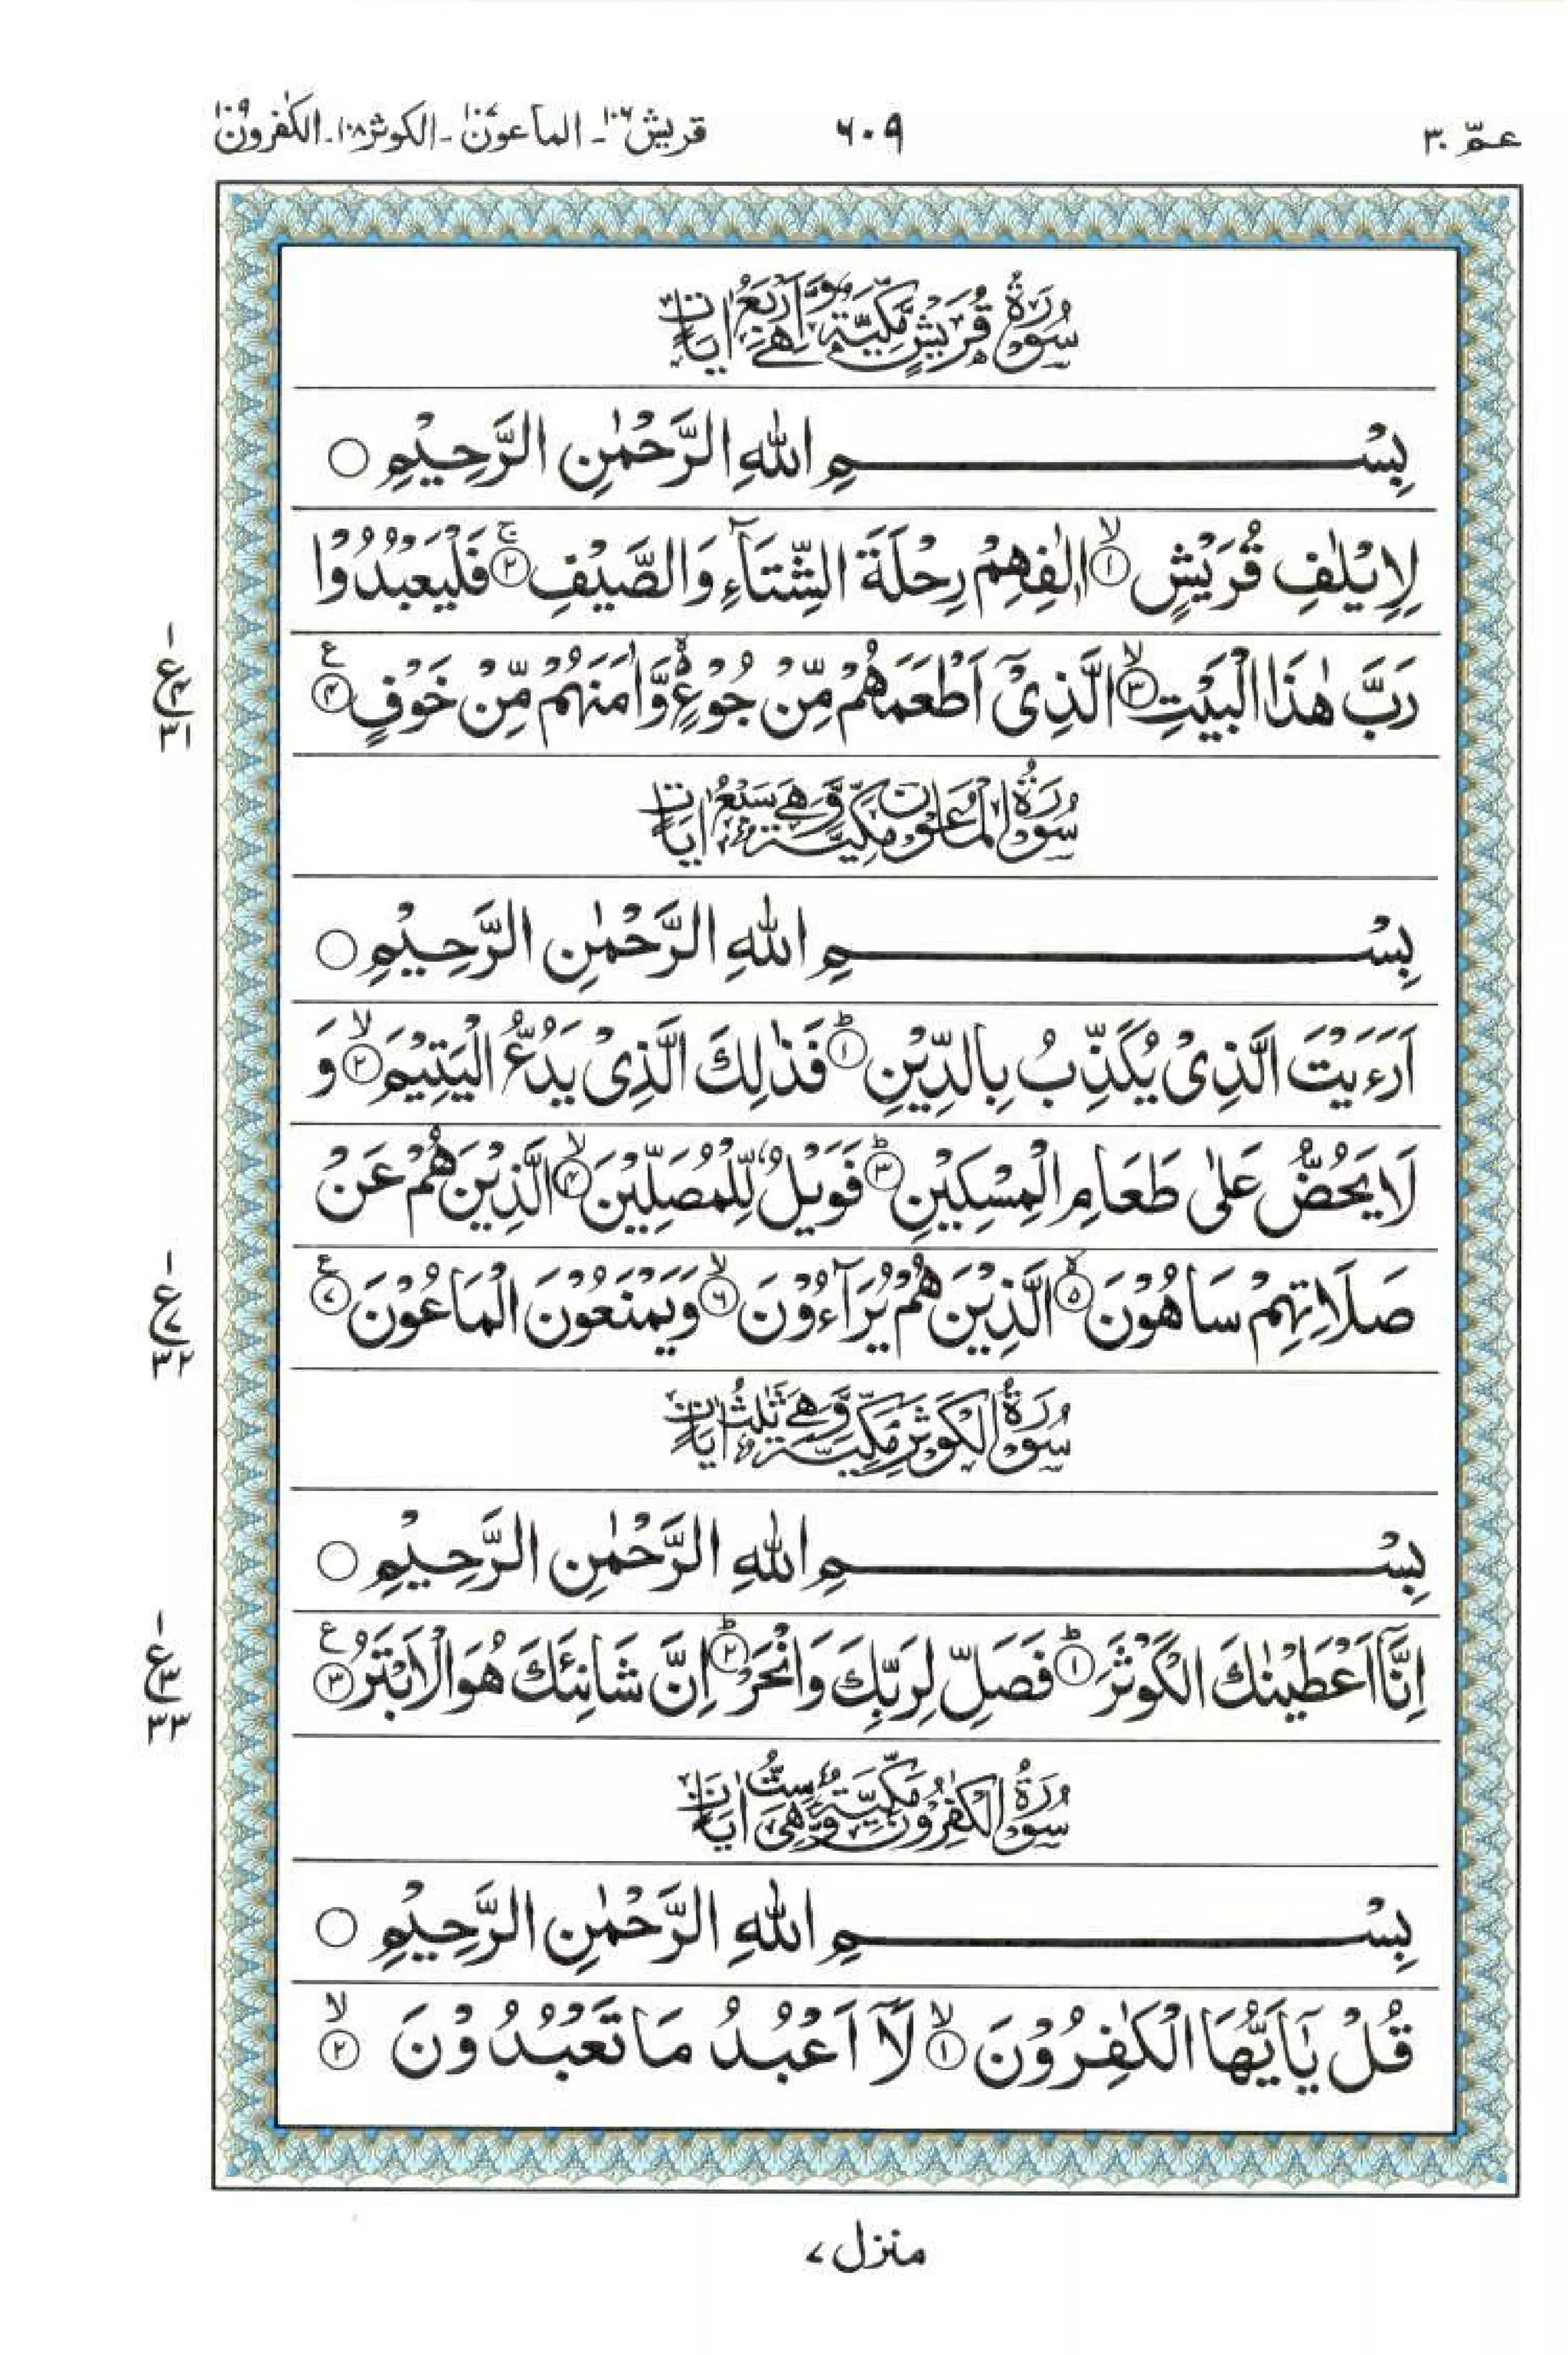 عمّ ۳۰ ۶۰۹ قریش ۱۰۶ - الماعون ۱۰۷ - الکوثر ۱۰۸ - الکٰفرون ۱۰۹
سُوْرَةُ قُرَيْشٍ مَّكِّيَّةٌ وَّهِيَ اَرْبَعُ اٰيَاتٍ
بِسْمِ اللهِ الرَّحْمٰنِ الرَّحِيْمِ ○
لِاِيْلٰفِ قُرَيْشٍ ۙ﴿۱﴾ اٖلٰفِهِمْ رِحْلَةَ الشِّتَآءِ وَالصَّيْفِ ۚ﴿۲﴾ فَلْيَعْبُدُوْا
رَبَّ هٰذَا الْبَيْتِ ۙ﴿۳﴾ الَّذِیْٓ اَطْعَمَهُمْ مِّنْ جُوْعٍ ۬ۙ وَّاٰمَنَهُمْ مِّنْ خَوْفٍ ﴿۴﴾ع
ع ۱ ۴ ۳۱
سُوْرَةُ الْمَاعُوْنِ مَكِّيَّةٌ وَّهِيَ سَبْعُ اٰيَاتٍ
بِسْمِ اللهِ الرَّحْمٰنِ الرَّحِيْمِ ○
اَرَءَيْتَ الَّذِیْ يُكَذِّبُ بِالدِّيْنِ ؕ﴿۱﴾ فَذٰلِكَ الَّذِیْ يَدُعُّ الْيَتِيْمَ ۙ﴿۲﴾ وَ
لَا يَحُضُّ عَلٰی طَعَامِ الْمِسْكِيْنِ ؕ﴿۳﴾ فَوَيْلٌ لِّلْمُصَلِّيْنَ ۙ﴿۴﴾ الَّذِيْنَ هُمْ عَنْ
صَلَاتِهِمْ سَاهُوْنَ ۙ﴿۵﴾ الَّذِيْنَ هُمْ يُرَآءُوْنَ ۙ﴿۶﴾ وَيَمْنَعُوْنَ الْمَاعُوْنَ ﴿۷﴾ع
ع ۱ ۷ ۳۲
سُوْرَةُ الْكَوْثَرِ مَكِّيَّةٌ وَّهِيَ ثَلٰثُ اٰيَاتٍ
بِسْمِ اللهِ الرَّحْمٰنِ الرَّحِيْمِ ○
اِنَّاۤ اَعْطَيْنٰكَ الْكَوْثَرَ ؕ﴿۱﴾ فَصَلِّ لِرَبِّكَ وَانْحَرْ ؕ﴿۲﴾ اِنَّ شَانِئَكَ هُوَ الْاَبْتَرُ ﴿۳﴾ع
ع ۱ ۳ ۳۳
سُوْرَةُ الْكٰفِرُوْنَ مَكِّيَّةٌ وَّهِیَ سِتُّ اٰيَاتٍ
بِسْمِ اللهِ الرَّحْمٰنِ الرَّحِيْمِ ○
قُلْ يٰۤاَيُّهَا الْكٰفِرُوْنَ ۙ﴿۱﴾ لَاۤ اَعْبُدُ مَا تَعْبُدُوْنَ ۙ﴿۲﴾
منزل ۷